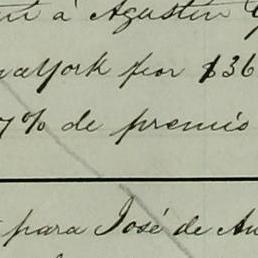 á Agustin
York por $36
7% de premio
para José de